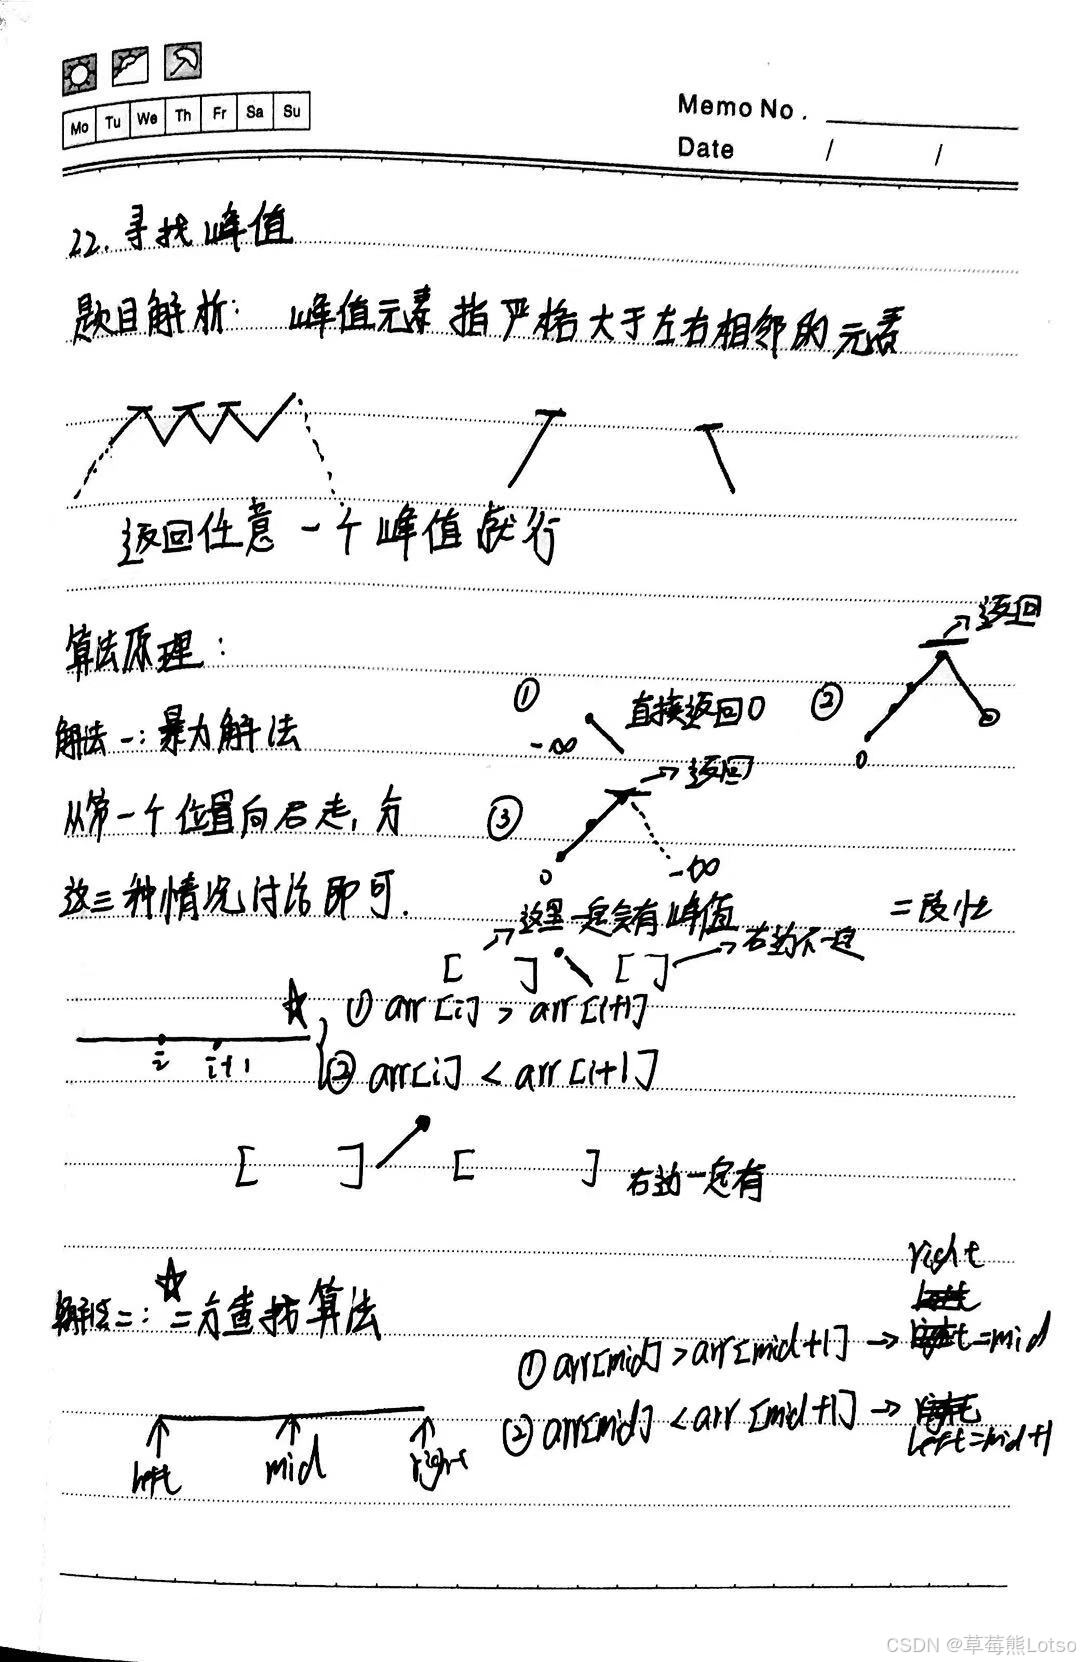 Mo Tu We Th Fr Sa Su
Memo No.
Date / /
22. 寻找峰值
题目解析: 峰值元素指严格大于左右相邻的元素
返回任意一个峰值就行
算法原理:
解法一: 暴力解法
从第一个位置向后走, 分
这三种情况讨论即可.
① 直接返回0
-∞
② 返回
0
③ 返回
0 -∞
这里一定会有峰值
二段性
[ ] [ ] 右边不一定
i i+1
① arr[i] > arr[i+1]
② arr[i] < arr[i+1]
[ ] [ ] 右边一定有
解法二: 二分查找算法
right
① arr[mid] > arr[mid+1] → =mid
② arr[mid] < arr[mid+1] →
left=mid+1
left mid right
CSDN @草莓熊Lotso